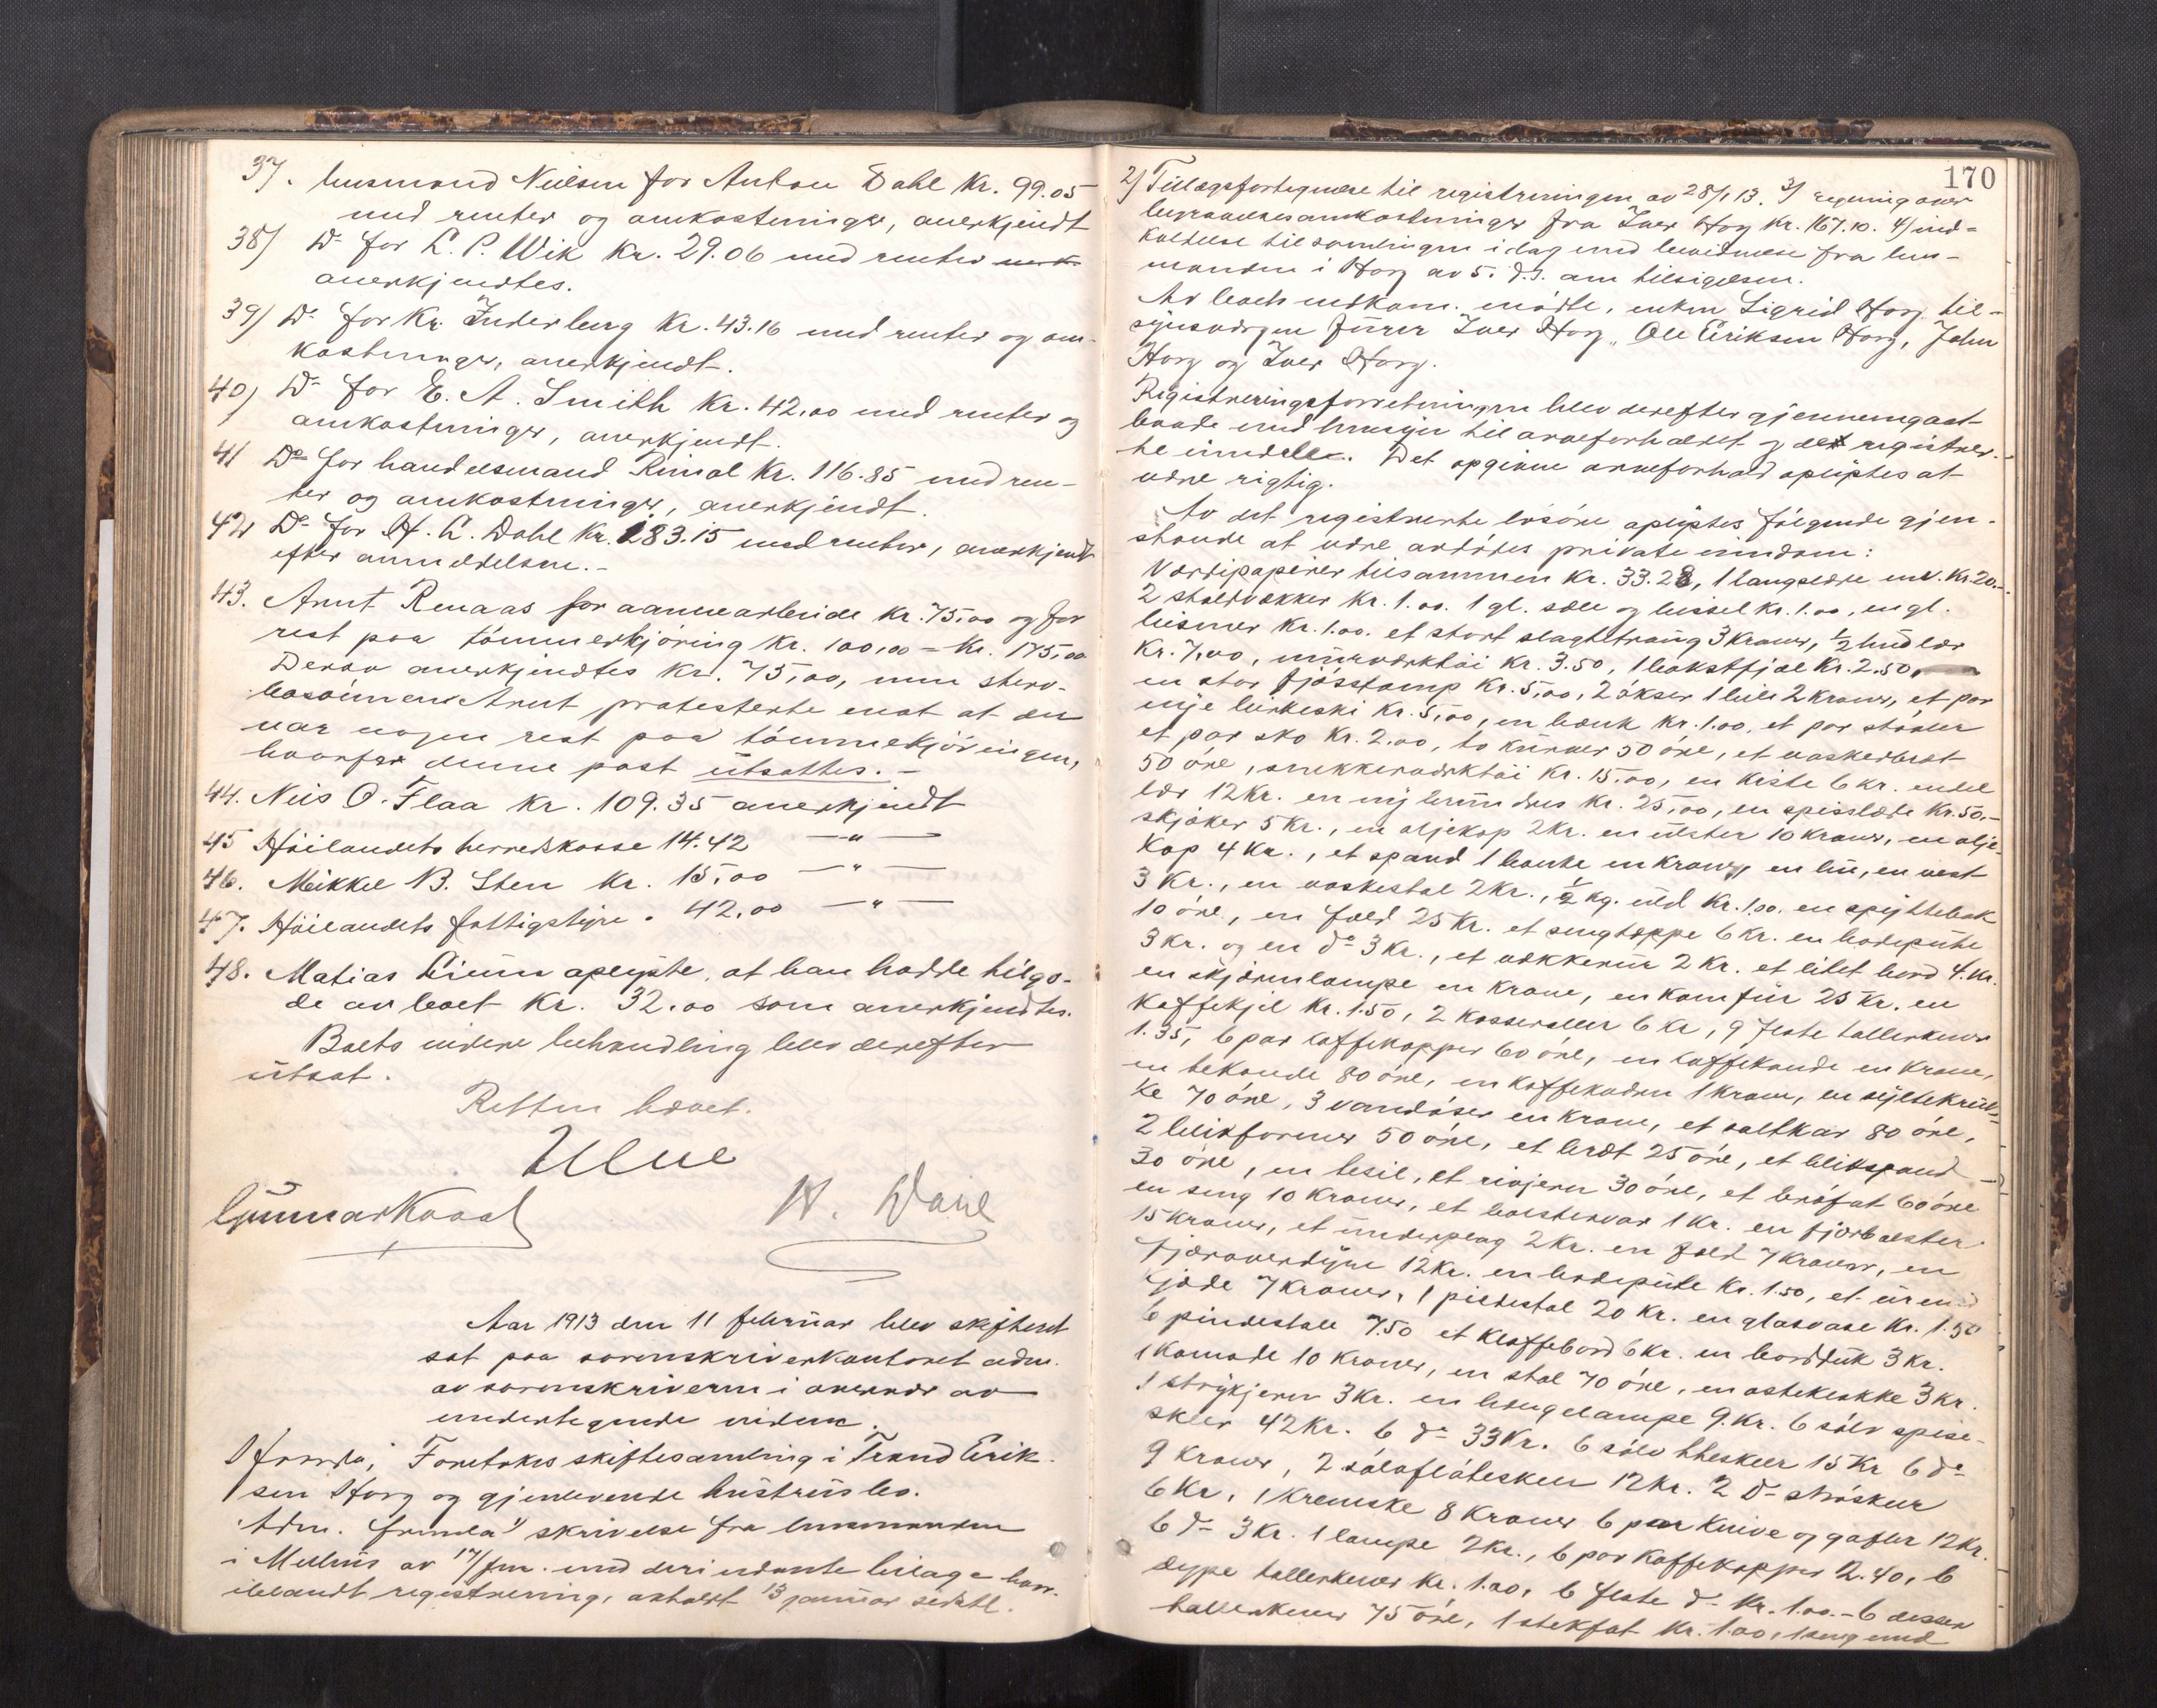 37. lensmand Nielsen for Anton Dahl Kr. 99.05
med renter og omkostninger, anerkjendt
38) Do for L. P. Wik Kr. 29.06 med renter
anerkjendtes.
39) Do for Kr. Inderberg Kr. 43.16 med renter og om-
kostninger, anerkjendt.
40) Do for E. A. Smith Kr. 42,00 med renter og
omkostninger, anerkjendt.
41 Do for handelsmand Rimol Kr. 116.85 med ren-
ter og omkostninger, anerkjendt.
42) Do for H. C. Dahl Kr. 283.15 med renter, anerkjendt
efter anmeldelsen.-
43. Arnt Renaas for aannearbeide Kr. 75,00 og for
rest paa tömmerkjöring Kr. 100,00 = Kr. 175,00
Derav anerkjendtes Kr. 75,00, men sterv-
bosönnen Arnt protesterte mot at der
var nogen rest paa tömmekjöringen,
hvorfor denne post utsattes.-
44. Nils O. Flaa Kr. 109.35 anerkjendt
45 Höilandets herredskasse 14.42 —"—
46. Mikkel B. Sten Kr. 15,00 —"—
47. Höilandets fattigstyre . 42,00 —"—
48. Matias Lium oplyste, at han hadde tilgo-
de av boet Kr. 32.00 som anerkjendtes.
Boets videre behandling blev derefter
utsat.
Retten hævet.
Ulve
Gunnar Kvaal
N. Dahl
Aar 1913 den 11 februar blev skifteret
sat paa sorenskriverkontoret adm.
av sorenskriveren i overvær av
undertegnede vidner.
Hvorda; Foretokes skiftesamling i Trond Erik-
sen Horg og gjenlevende hustrus bo.
Adm. fremla 1) skrivelse fra lensmanden
i Melhus av 17/ f.m. med deri nævnte bilage hvor-
iblandt registrering, avholdt 13 januar sidstl.
170
2) Tillægsfortegnelse til registreringen av 28/1 13. 3) regning over
begravelsesomkostninger fra Iver Horg Kr. 167.10. 4) ind-
kaldelse til samlingen idag med bevidnelse fra lens-
manden i Horg av 5. d.s. om tilsigelsen.
Av vedkom. mödte, enken Sigrid Horg, til-
synsværgen Iver Horg, Ole Eriksen Horg, John
Horg og Iver Horg.
Registreringsforretningen blev derefter gjennemgaat
baade med hensyn til arveforholdet og det registrer-
te eiendele. Det opgivne arveforhold oplystes at
være rigtig.
Av det registrerte lösöre oplystes fölgende gjen-
stande at være avdödes private eiendom:
Værdipapirer tilsammen Kr. 33.28, 1 langslæde Kr. 20.-
2 Kr. 1.00. 1 gl. sæle og bissel Kr. 1.00, en gl.
bismer Kr. 1.00. et stort slagttraug 3 kroner, 1/2 hud lær
Kr. 7,00, murværktöi Kr. 3.50, 1 bakstfjæl Kr. 2.50,
en stor fjösstamp Kr. 5,00, 2 økser 1 bile 2 kroner, et par
nye birkeski Kr. 5,00, en bænk Kr. 1.00, et par stövler
et par sko Kr. 2.00, to kurver 50 öre, et vaskebræt
50 öre, snekkerværktöi Kr. 15,00, en kiste 6 kr. endel
lær 12 Kr. en ny Kr. 25,00, en spisslæde Kr. 50.-
skjæker 5 Kr., en oljekap 2 Kr. en ulster 10 kroner, en olje-
kap 4 Kr., et spand 1 en krone, en lue, en vest
3 Kr., en vaskestol 2 Kr., 1/2 kg. uld Kr. 1.00. en spyttebak
10 öre, en feld 25 Kr. et sengtæppe 6 Kr. en hodepute
3 Kr. og en do 3 Kr., et vækkerur 2 Kr. et litet bord 4. Kr.
en skjermlampe en krone, en komfur 25 Kr. en
kaffekjel Kr. 1.50, 2 kasseroller 6 Kr, 9 flate tallerkener
1.35, 6 par kaffekopper 60 öre, en kaffekande en krone,
en tekande 80 öre, en 1 krone, en syltekruk-
ke 70 öre, 3 vandöser en krone, et saltkar 80 öre,
2 blikformer 50 öre, et bræt 25 öre, et blikspand
30 öre, en tesil, et rivjern 30 öre, et bröfat 60 öre
en seng 10 kroner, et bolstervar 1 Kr. en fjærbolster
15 kroner, et underplag 2 Kr. en feld 7 kroner, en
fjæroverdyne 12 Kr. en hodepute Kr. 1.50, et ur med
kjæde 7 kroner, 1 pidestal 20 Kr. en glasvase Kr. 1.50
6 pindestole 7.50 et klaffebord 6 Kr. en bordduk 3 Kr.
1 komode 10 kroner, en stol 70 öre, en osteklokke 3 Kr.
1 strykjern 3 Kr. en hængelampe 9. Kr. 6 sölv spise-
skeer 42 Kr. 6 do 33 Kr. 6 sölv theskeer 15 Kr 6 do
9 kroner, 2 sölvflöteskeer 12 Kr. 2 do ströskeer
6 Kr, 1 kremske 8 kroner 6 par knive og gafler 12 Kr.
6 do 3 Kr. 1 lampe 2 Kr., 6 par kaffekopper 2.40, 6
dype tallerkener Kr. 1.00, 6 flate do Kr. 1.00.- 6 dessert
tallerkener 75 öre, 1 stekfat Kr. 1.00, 1 seng med